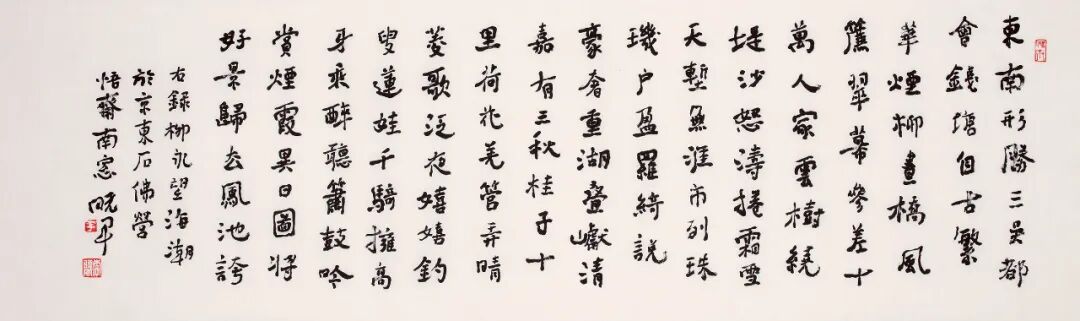 東南形勝三吳都
會錢塘自古繁
華煙柳畫橋風
簾翠幕參差十
萬人家雲樹繞
堤沙怒濤捲霜雪
天塹無涯市列珠
璣戶盈羅綺競
豪奢重湖疊巘清
嘉有三秋桂子十
里荷花羌管弄晴
菱歌泛夜嬉嬉釣
叟蓮娃千騎擁高
牙乘醉聽簫鼓吟
賞煙霞異日圖將
好景歸去鳳池誇
右錄柳永望海潮
於京東石佛營
悟馨南窗